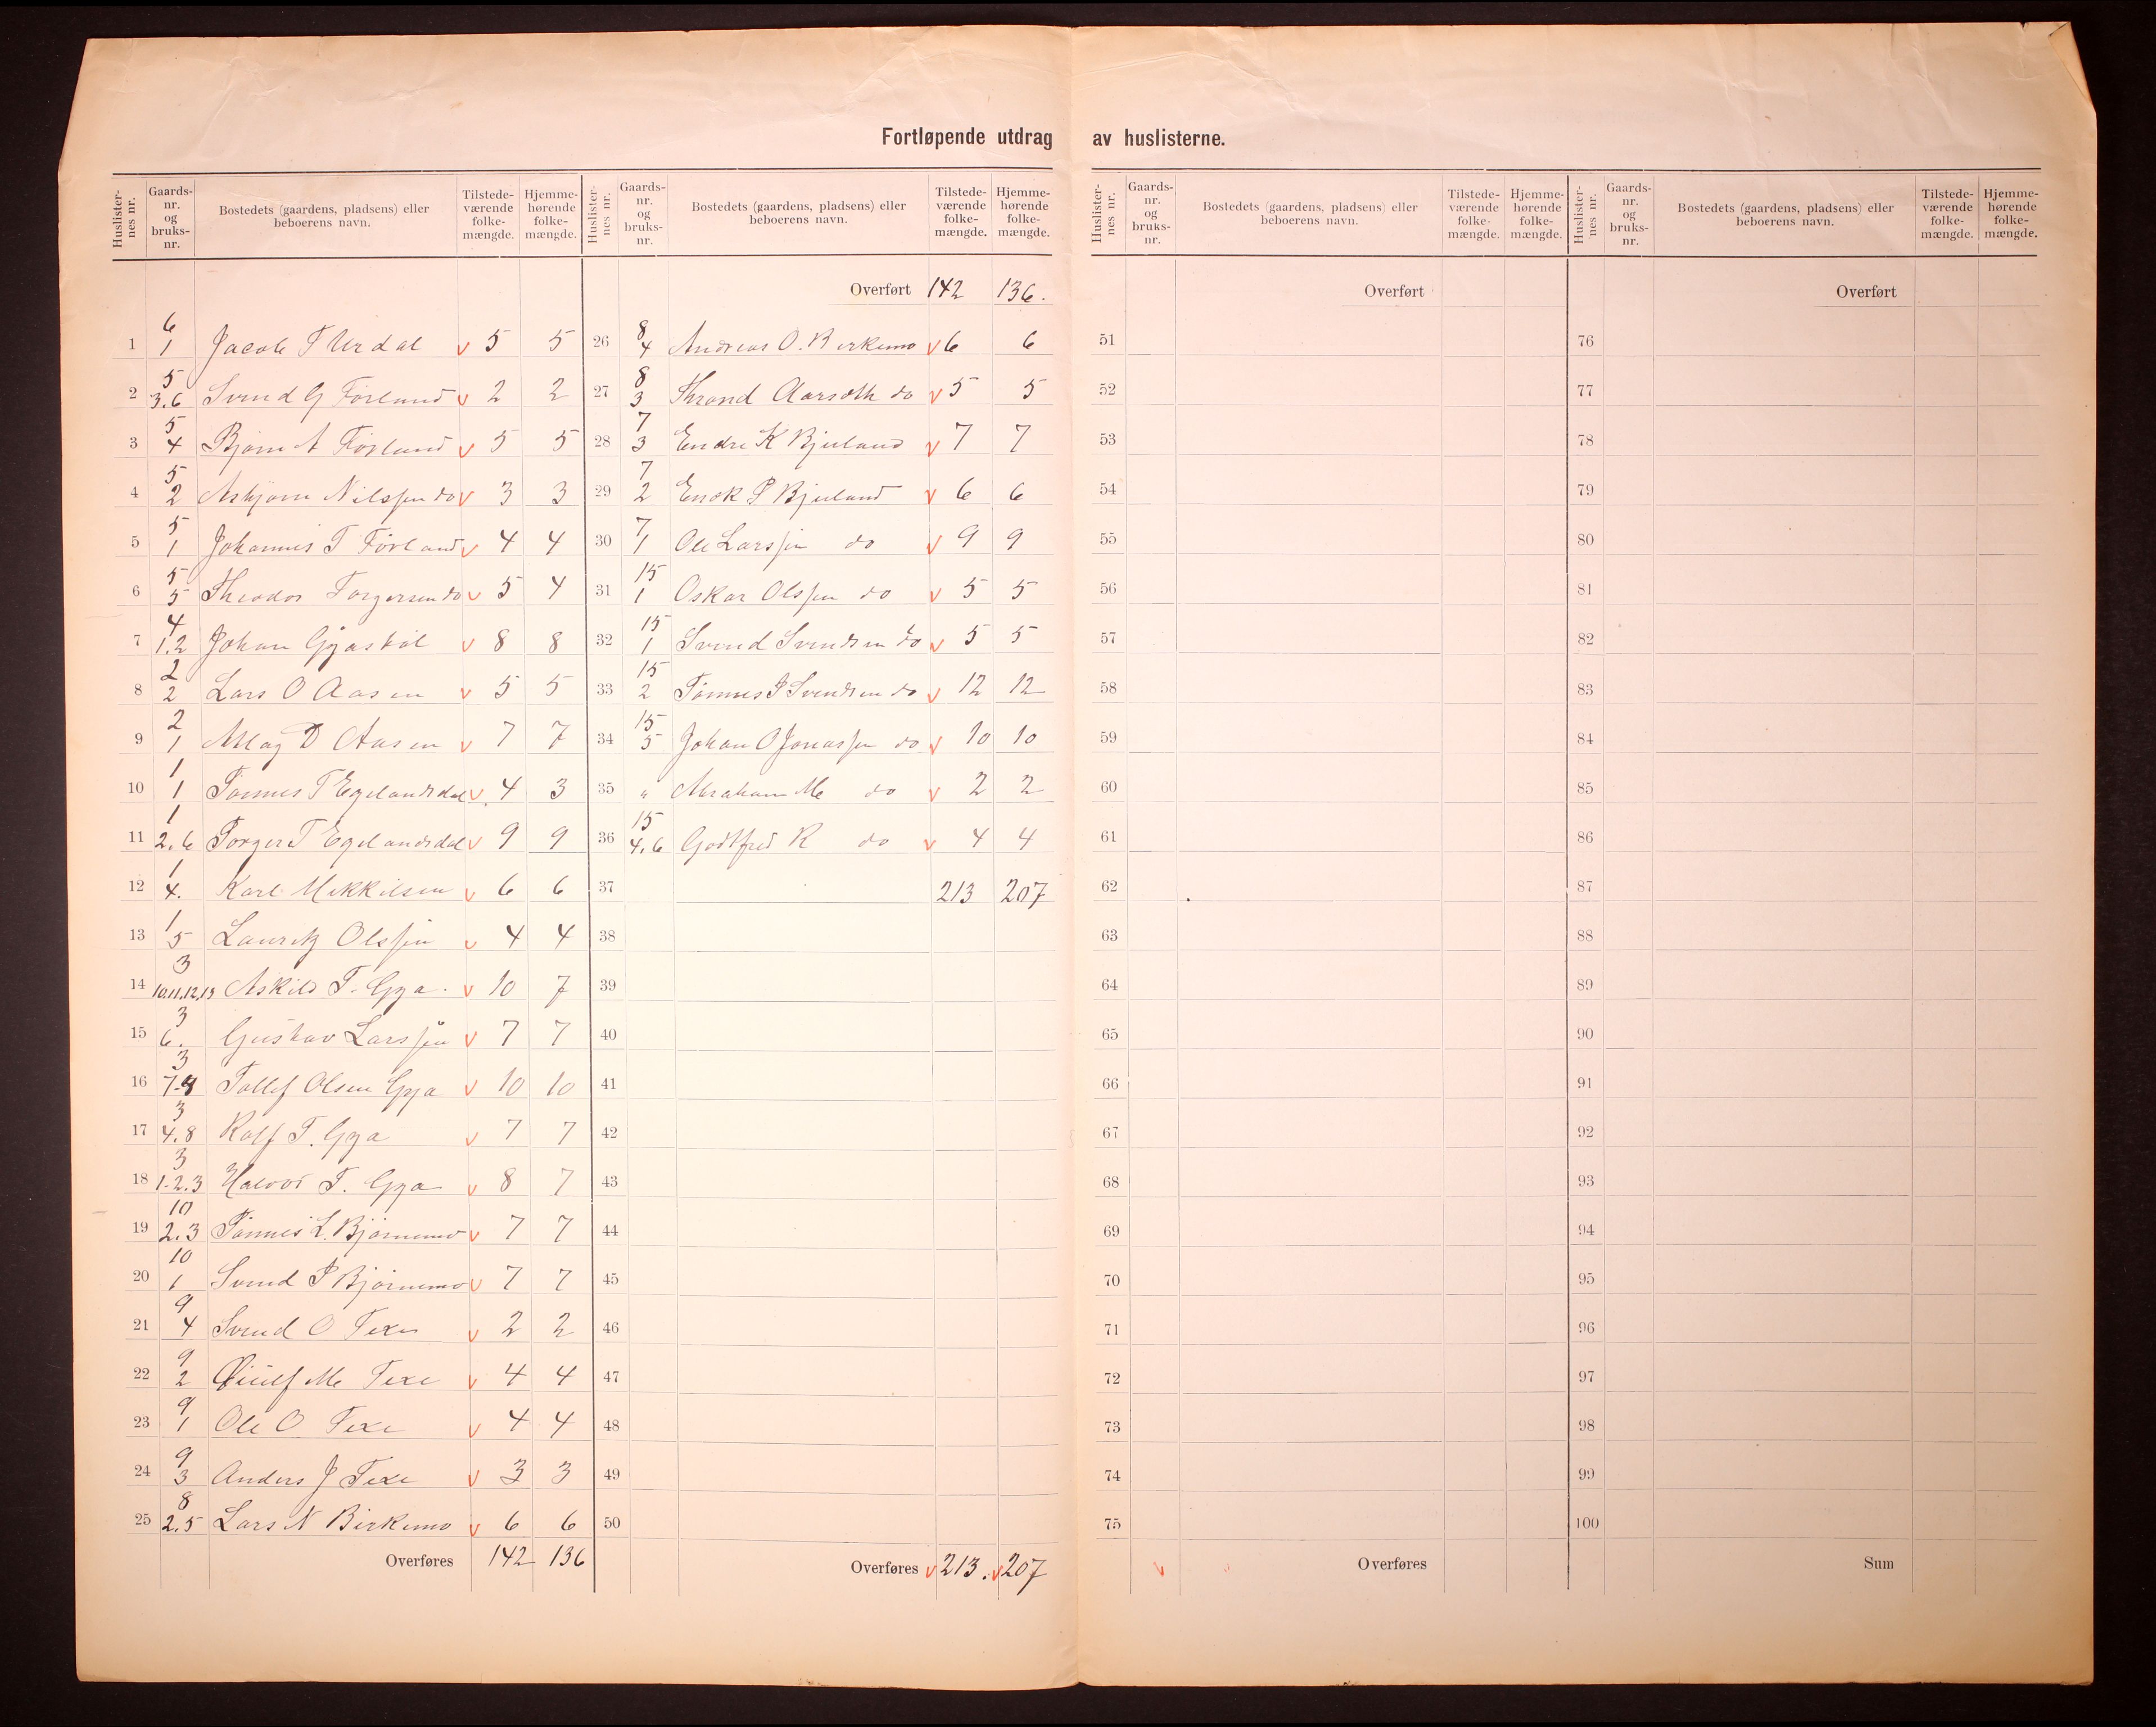 Fortløpende utdrag av huslisterne.
Huslister-nes nr. Gaards-nr. og bruks-nr. Bostedets (gaardens, pladsens) eller beboerens navn. Tilstede-værende folke-mængde. Hjemme-hørende folke-mængde.
1 6 1 Jacob T Urdal v 5 5
2 5 3.6 Svend G Førland v 2 2
3 5 4 Bjørn A Førland v 5 5
4 5 2 Asbjørn Nilssen do v 3 3
5 5 1 Johannes T Førland v 4 4
6 5 5 Theodor Torgersen do v 5 4
7 4 1.2 Johan Gyaskil v 8 8
8 2 2 Lars O Aasen v 5 5
9 2 1 Atlag D Aasen v 7 7
10 1 1 Tønnes T Egelandsdal v 4 3
11 1 2.6 Torger T Egelandsdal v 9 9
12 1 4. Karl Mikkilsen v 6 6
13 1 5 Lauritz Olssen v 4 4
14 3 10.11.12.13 Askild T. Gya. v 10 7
15 3 6. Gustav Larssen v 7 7
16 3 7-9 Tollef Olsen Gya v 10 10
17 3 4.8 Rolf T. Gya v 7 7
18 3 1-2.3 Halvor T. Gya v 8 7
19 10 2.3 Tønnes L. Bjørnemo v 7 7
20 10 1 Svend P Bjørnemo v 7 7
21 9 4 Svend O Texe v 2 2
22 9 2 M Texe v 4 4
23 9 1 Ole O Texe v 4 4
24 9 3 Anders J Texe v 3 3
25 8 2.5 Lars N Birkemo v 6 6
Overføres 142 136
Huslister-nes nr. Gaards-nr. og bruks-nr. Bostedets (gaardens, pladsens) eller beboerens navn. Tilstede-værende folke-mængde. Hjemme-hørende folke-mængde.
Overført 142 136.
26 8 4 Andreas O. Birkemo v 6 6
27 8 3 Thrond Aarseth do v 5 5
28 7 3 Endre K Bjuland v 7 7
29 7 2 Enok P Bjuland v 6 6
30 7 1 Ole Larssen do v 9 9
31 15 1 Oskar Olssen do v 5 5
32 15 1 Svend Svendsen do v 5 5
33 15 2 Tønnes P Svendsen do v 12 12
34 15 5 Johan O Jonassen do v 10 10
35 " Abraham M do v 2 2
36 15 4.6 Godtfred R do v 4 4
37 213 207
38
39
40
41
42
43
44
45
46
47
48
49
50
Overføres v 213. v 207
Huslister-nes nr. Gaards-nr. og bruks-nr. Bostedets (gaardens, pladsens) eller beboerens navn. Tilstede-værende folke-mængde. Hjemme-hørende folke-mængde.
Overført
51
52
53
54
55
56
57
58
59
60
61
62
63
64
65
66
67
68
69
70
71
72
73
74
75
v Overføres
Huslister-nes nr. Gaards-nr. og bruks-nr. Bostedets (gaardens, pladsens) eller beboerens navn. Tilstede-værende folke-mængde. Hjemme-hørende folke-mængde.
Overført
76
77
78
79
80
81
82
83
84
85
86
87
88
89
90
91
92
93
94
95
96
97
98
99
100
Sum